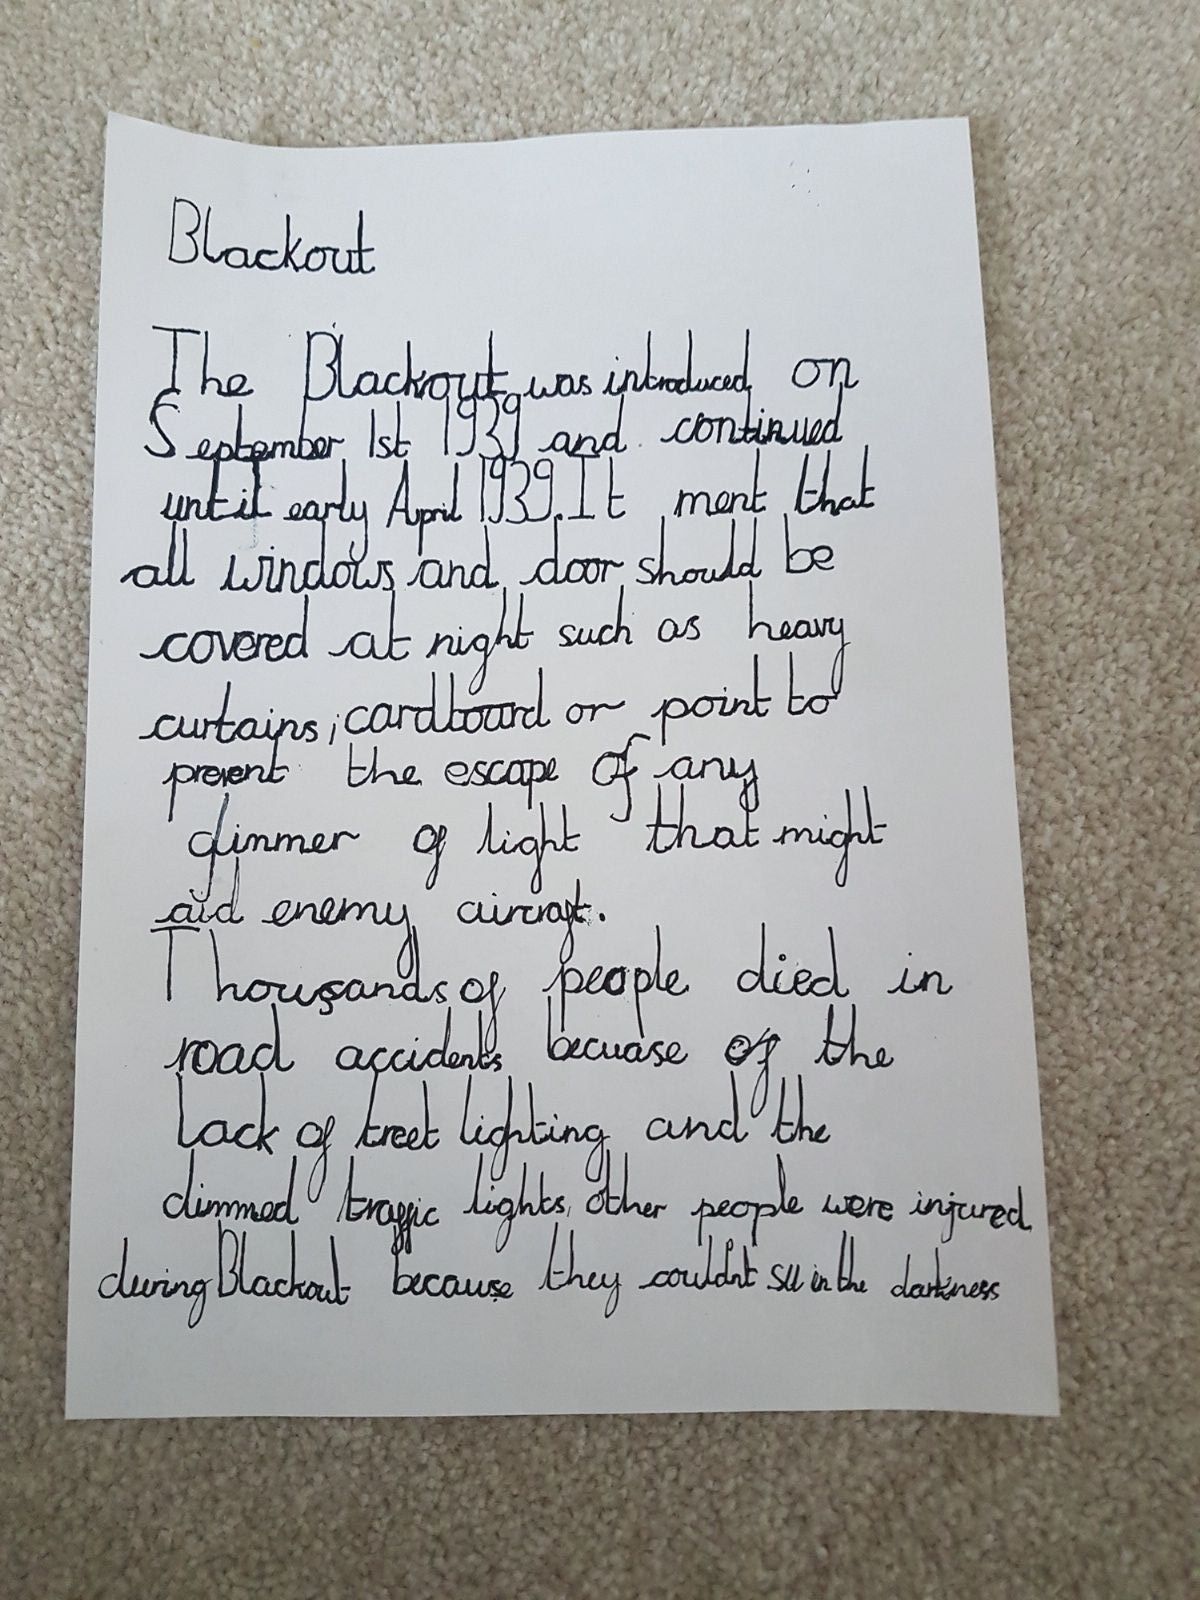 Blackout
The Blackout was introduced on
September 1st 1939 and continued
until early April 1939. It ment that
all windows and door should be
covered at night such as heavy
curtains, cardboard or point to
prevent the escape of any
glimmer of light that might
aid enemy aircraft.
Thousands of people died in
road accidents becuase of the
lack of treet lighting and the
dimmed traffic lights, other people were injured
during Blackout because they couldn't see in the darkness